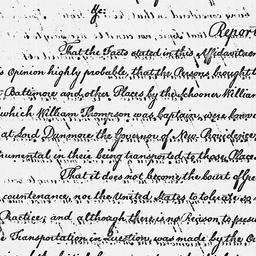 Ye:
Report
That the Facts stated in this Affidavit
is Opinion highly probable, that the Persons brought
Baltimore and other Places by the Schooner William
which William Thompson was Captain, were
Lord Dunmore the Governor of New Providence
umental in their being transported to those Places
That it does not become the
countenance, nor the United States to tolerate
Practice; and although there is no Reason to
Transportation in question, was made by the